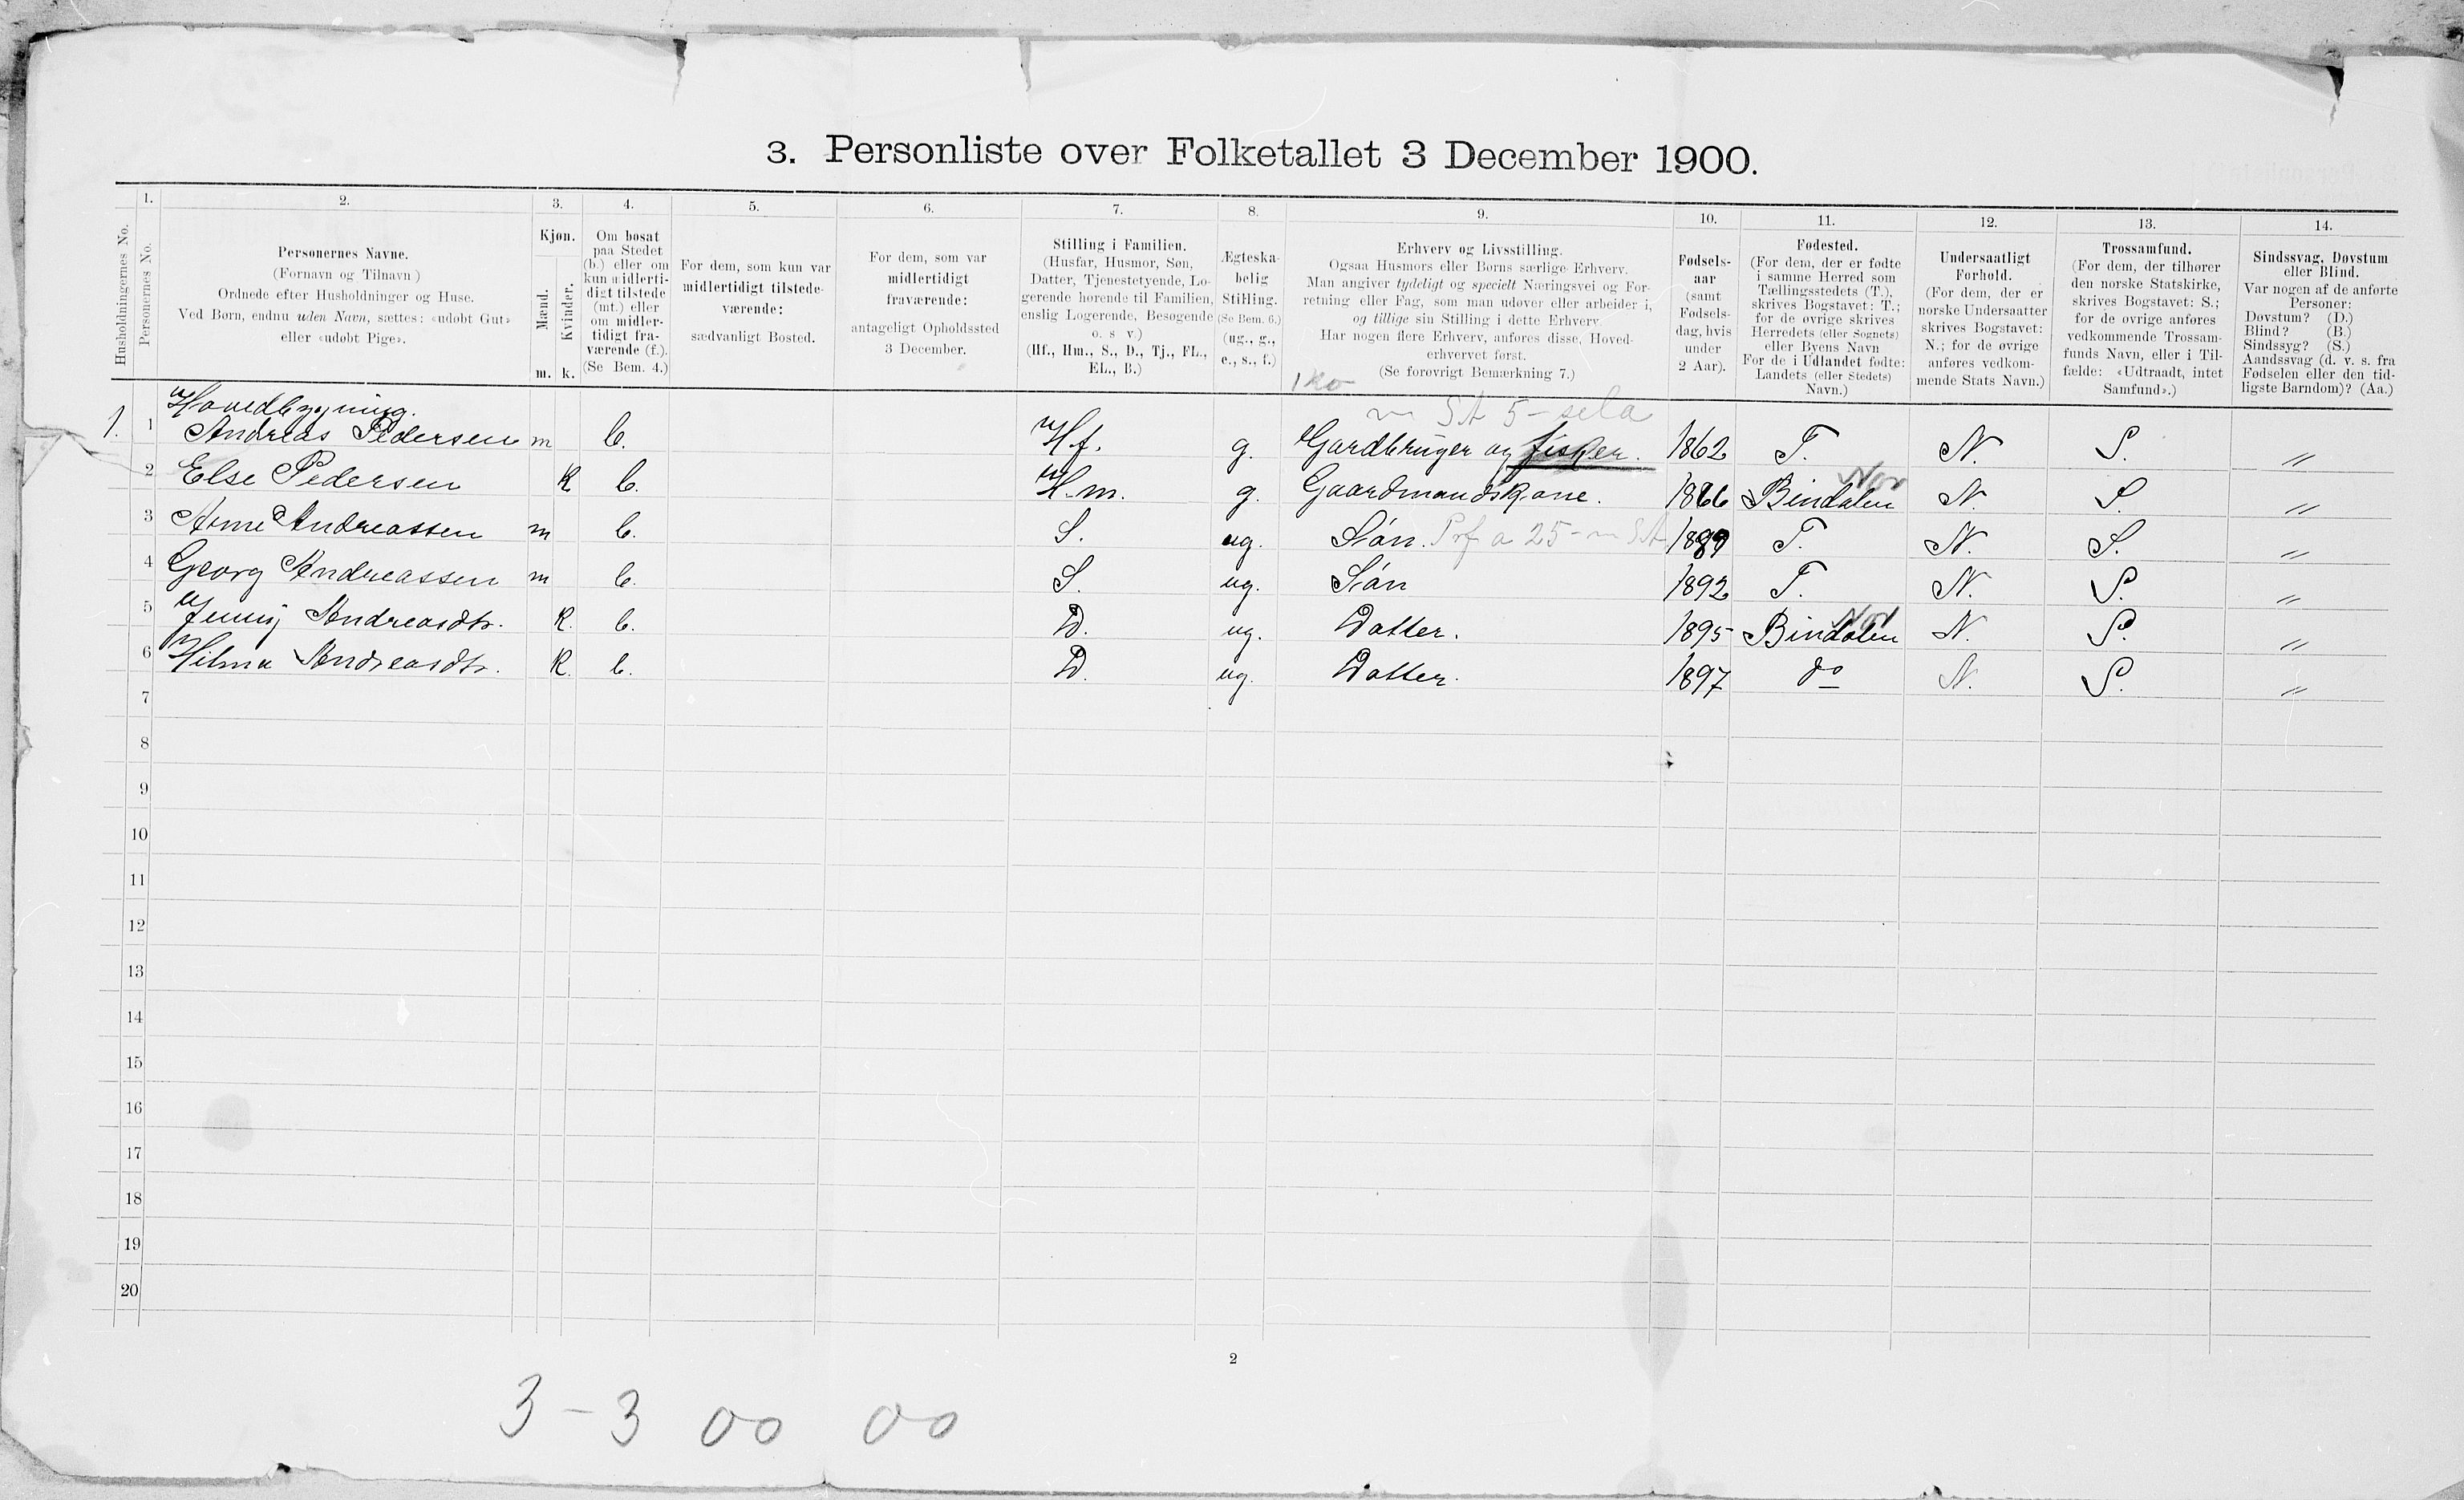 3. Personliste over Folketallet 3 December 1900.
Husholdningernes No.
1.
Personernes No.
2.
Personernes Navne.
(Fornavn og Tilnavn)
Ordnede efter Husholdninger og Huse.
Ved Børn, endnu uden Navn, sættes: «udøbt Gut»
eller «udøbt Pige».
3.
Kjøn.
Mænd.
Kvinder.
m. k.
4.
Om bosat
paa Stedet
(b.) eller om
kun midlerti-
digt tilstede
(mt.) eller
om midler-
tidigt fra-
værende (f.).
(Se Bem. 4.)
5.
For dem, som kun var
midlertidigt tilstede-
værende:
sædvanligt Bosted.
6.
For dem, som var
midlertidigt
fraværende:
antageligt Opholdssted
3 December.
7.
Stilling i Familien.
(Husfar, Husmor, Søn,
Datter, Tjenestetyende, Lo-
gerende hørende til Familien,
enslig Logerende, Besøgende
o. s v.)
(Hf., Hm., S., D., Tj., FL.,
EL., B.)
8.
Ægteska-
belig
Stilling.
(Se Bem. 6.)
(ug., g.,
e., s., f.)
9.
Erhverv og Livsstilling.
Ogsaa Husmors eller Børns særlige Erhverv.
Man angiver tydeligt og specielt Næringsvei og For-
retning eller Fag, som man udøver eller arbeider i,
og tillige sin Stilling i dette Erhverv.
Har nogen flere Erhverv, anføres disse, Hoved-
erhvervet først.
(Se forøvrigt Bemærkning 7.)
10.
Fødsels-
aar
(samt
Fødsels-
dag, hvis
under
2 Aar).
11.
Fødested.
(For dem, der er fødte
i samme Herred som
Tællingsstedets (T.),
skrives Bogstavet: T.;
for de øvrige skrives
Herredets (eller Sognets)
eller Byens Navn
For de i Udlandet fødte:
Landets (eller Stedets)
Navn.)
12.
Undersaatligt
Forhold.
(For dem, der er
norske Undersaatter
skrives Bogstavet:
N.; for de øvrige
anføres vedkom-
mende Stats Navn.)
13.
Trossamfund.
(For dem, der tilhører
den norske Statskirke,
skrives Bogstavet: S.;
for de øvrige anføres
vedkommende Trossam-
funds Navn, eller i Til-
fælde: «Udtraadt, intet
Samfund».)
14.
Sindssvag, Døvstum
eller Blind.
Var nogen af de anførte
Personer:
Døvstum? (D.)
Blind? (B.)
Sindssyg? (S.)
Aandssvag (d. v. s. fra
Fødselen eller den tid-
ligste Barndom)? (Aa.)
Hovedbygning.
1. 1 Andreas Pedersen m b. Hf. g. Gardbruger og fisker. 1862 T. N. S. "
2 Else Pedersen k b. H.m. g. Gaardmandskone. 1866 Bindalen N. S. "
Nor
3 Arne Andreassen m b. S. ug. Sön. 1889 T. N. S. "
4 Georg Andreassen m b. S. ug. Sön 1892 T. N. S. "
5 Jenny Andreasdtr. k. b. D. ug. Datter. 1895 Bindalen N. S. "
Nor
6 Hilma Andreasdtr. k. b. D. ug. Datter. 1897 do N. S. "
7
8
9
10
11
12
13
14
15
16
17
18
19
20
2
3 - 3 00 00